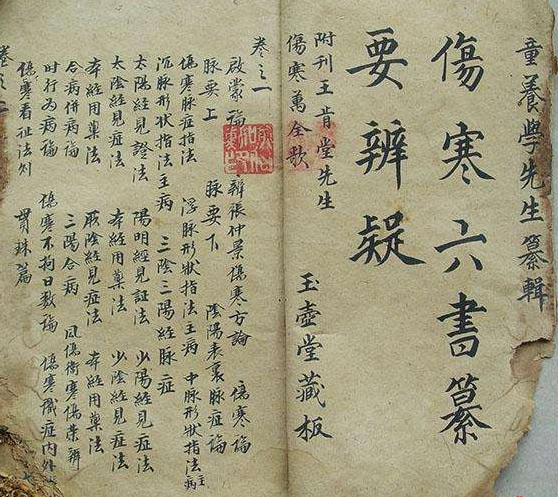 童養學先生纂輯
傷寒六書纂
要辨疑
附刊王肯堂先生
傷寒萬全歌
玉壺堂藏板
卷之一
啟蒙論 辨張仲景傷寒方論 傷寒論
脉要上 脉要下 陰陽表裏脉症論
傷寒脉症指法 浮脉形狀指法主病 中脉形狀指法主病
沉脉形狀指法主病 三陰三陽經脉症
太陽經見證法 陽明經見証法 少陽經見症法
太陰經見症法 本經用藥法 少陰經見症法
本經用藥法 厥陰經見症法 本經用藥法
合病併病論 三陽合病 風傷衛寒傷榮辨
時行為病論 傷寒不拘日數論 傷寒戴症內外
傷寒看症法則 貫珠篇
卷之二